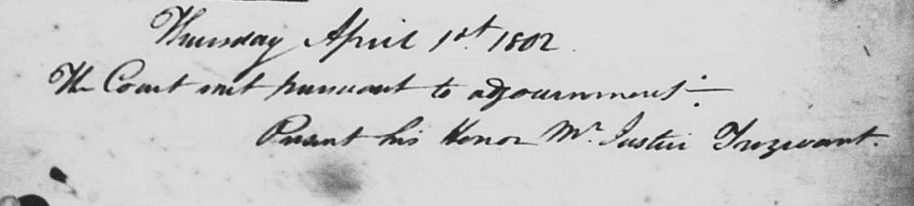 Thursday April 1st. 1802.
The Court met pursuant to adjournment÷
Present his Honor Mr. Justice Trezevant.